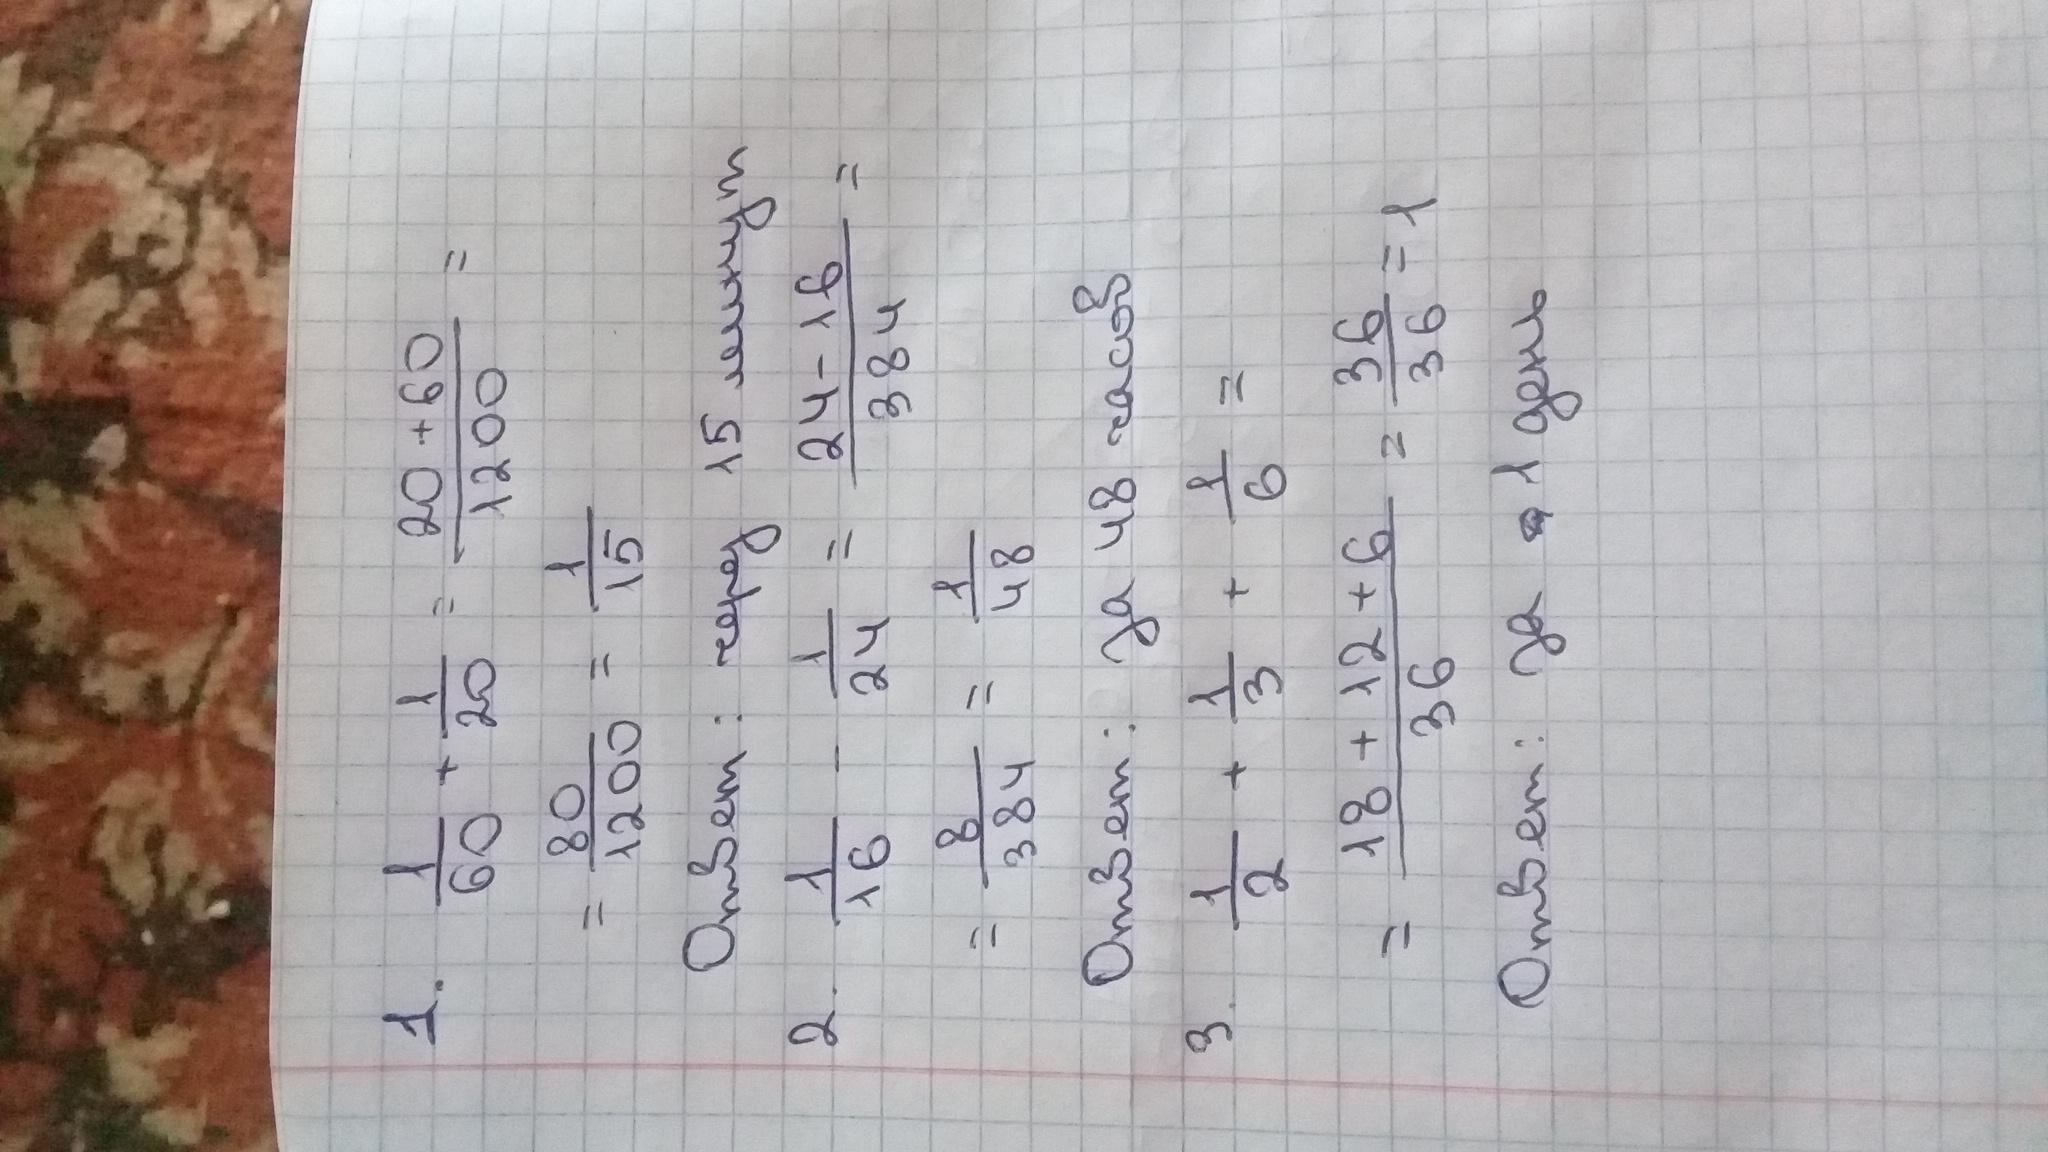 1. 1/60 + 1/20 = (20+60)/1200 =
= 80/1200 = 1/15
Ответ: через 15 минут
2. 1/16 - 1/24 = (24-16)/384 =
= 8/384 = 1/48
Ответ: за 48 часов
3. 1/2 + 1/3 + 1/6 =
= (18+12+6)/36 = 36/36 = 1
Ответ: за 1 день